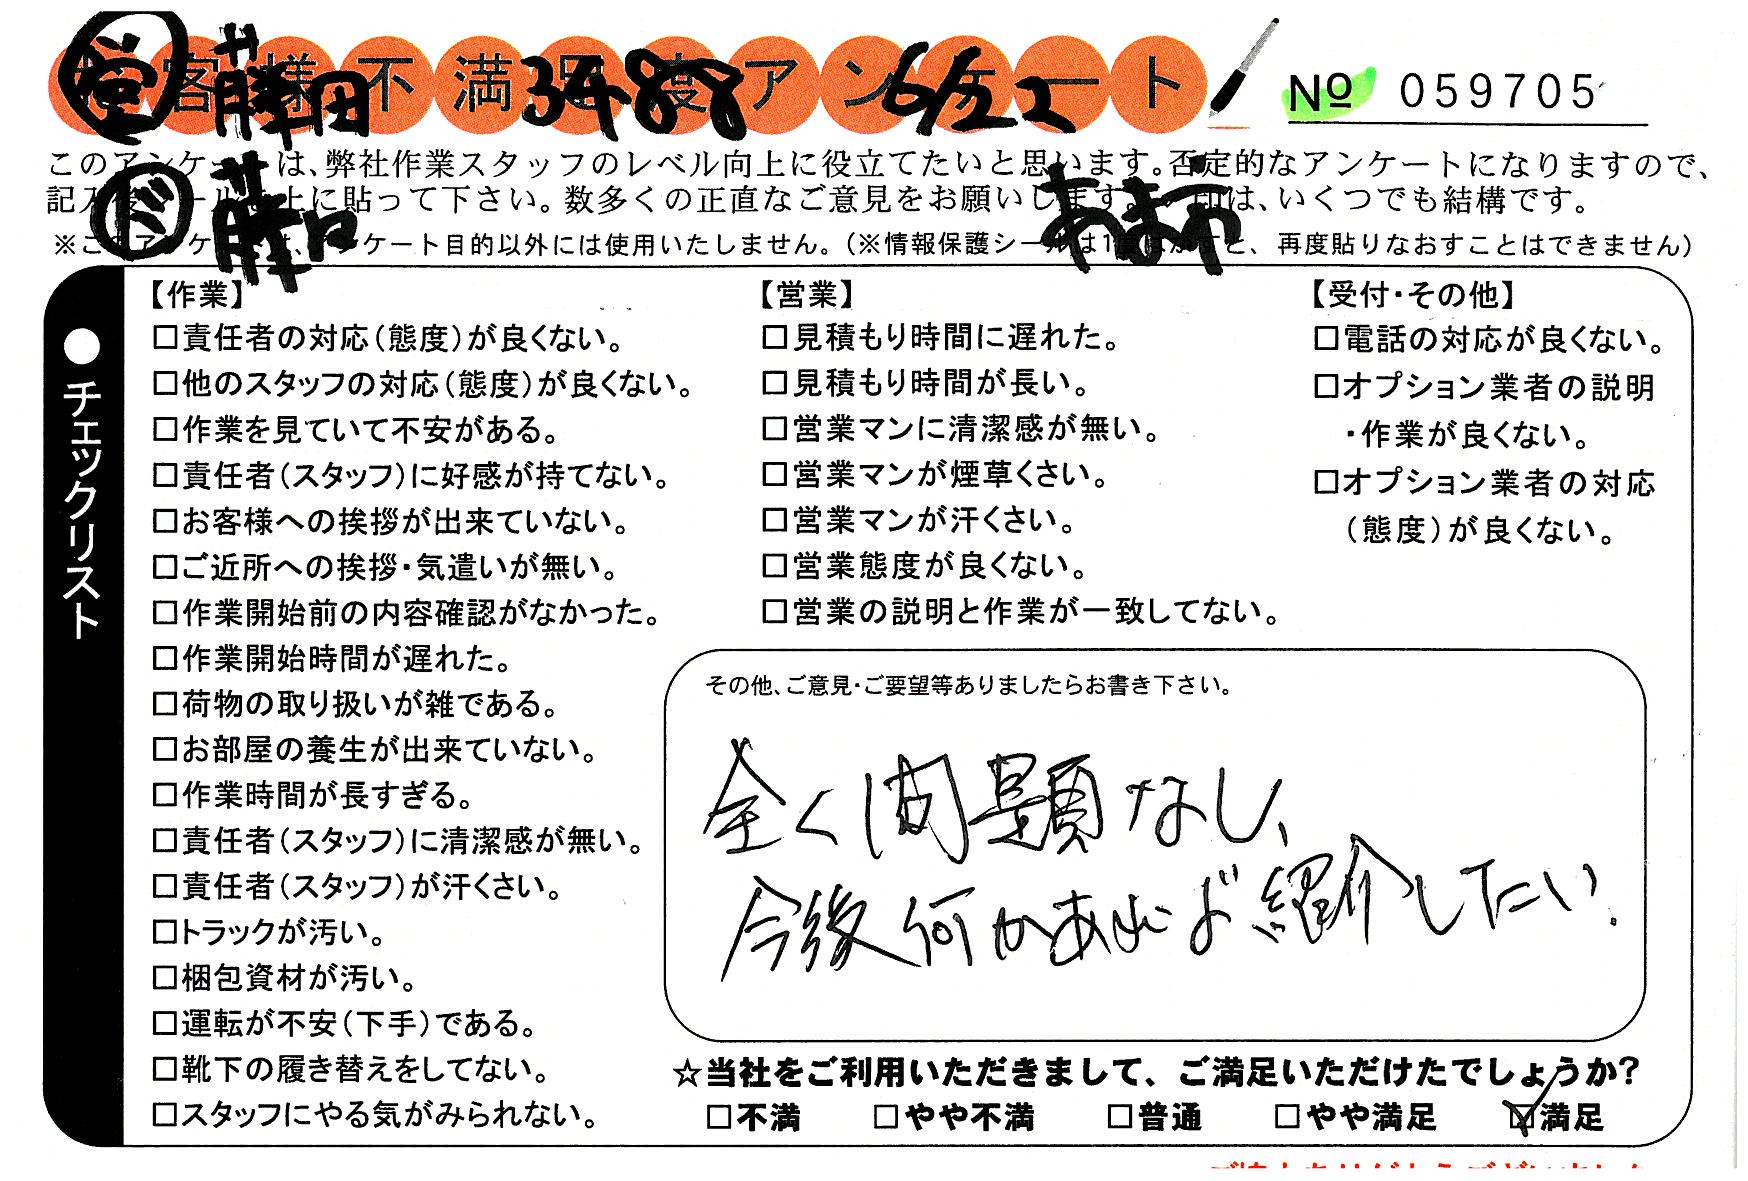 お客様不満足度アンケート
営 藤田 3488 6/22
№ 059705
このアンケートは、弊社作業スタッフのレベル向上に役立てたいと思います。否定的なアンケートになりますので、
記入後シールを上に貼って下さい。数多くの正直なご意見をお願いします。レ印は、いくつでも結構です。
ド 藤口
※このアンケートは、アンケート目的以外には使用いたしません。（※情報保護シールは1度はがすと、再度貼りなおすことはできません）
●チェックリスト
【作業】
□責任者の対応（態度）が良くない。
□他のスタッフの対応（態度）が良くない。
□作業を見ていて不安がある。
□責任者（スタッフ）に好感が持てない。
□お客様への挨拶が出来ていない。
□ご近所への挨拶・気遣いが無い。
□作業開始前の内容確認がなかった。
□作業開始時間が遅れた。
□荷物の取り扱いが雑である。
□お部屋の養生が出来ていない。
□作業時間が長すぎる。
□責任者（スタッフ）に清潔感が無い。
□責任者（スタッフ）が汗くさい。
□トラックが汚い。
□梱包資材が汚い。
□運転が不安（下手）である。
□靴下の履き替えをしてない。
□スタッフにやる気がみられない。
【営業】
□見積もり時間に遅れた。
□見積もり時間が長い。
□営業マンに清潔感が無い。
□営業マンが煙草くさい。
□営業マンが汗くさい。
□営業態度が良くない。
□営業の説明と作業が一致してない。
【受付・その他】
□電話の対応が良くない。
□オプション業者の説明
・作業が良くない。
□オプション業者の対応
（態度）が良くない。
その他、ご意見・ご要望等ありましたらお書き下さい。
全く問題なし、
今後何かあれば紹介したい.
☆当社をご利用いただきまして、ご満足いただけたでしょうか?
□不満 □やや不満 □普通 □やや満足 ☑満足